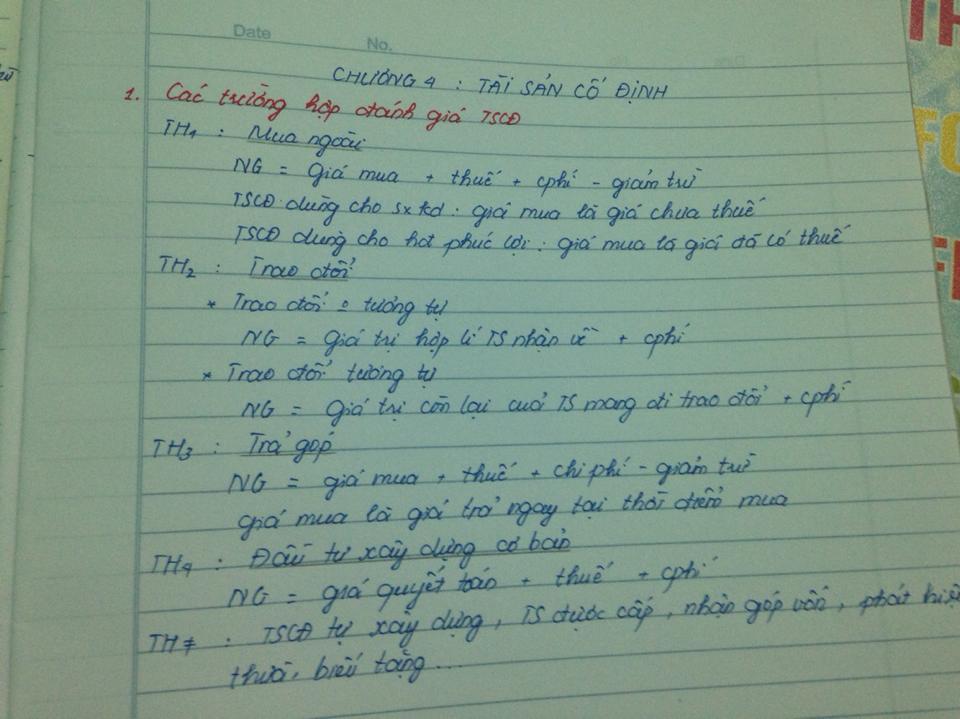 Date No.
CHƯƠNG 4 : TÀI SẢN CỐ ĐỊNH
1. Các trường hợp đánh giá TSCĐ
TH1 : Mua ngoài
NG = giá mua + thuế + cphí - giảm trừ
TSCĐ dùng cho sxkd : giá mua là giá chưa thuế
TSCĐ dùng cho hđ phúc lợi : giá mua là giá đã có thuế
TH2 : Trao đổi
* Trao đổi o tương tự
NG = giá trị hợp lí TS nhận về + cphí
* Trao đổi tương tự
NG = giá trị còn lại của TS mang đi trao đổi + cphí
TH3 : Trả góp
NG = giá mua + thuế + chi phí - giảm trừ
giá mua là giá trả ngay tại thời điểm mua
TH4 : Đầu tư xây dựng cơ bản
NG = giá quyết toán + thuế + cphí
TH≠ : TSCĐ tự xây dựng, TS được cấp, nhận góp vốn, phát hiện
thừa, biếu tặng...